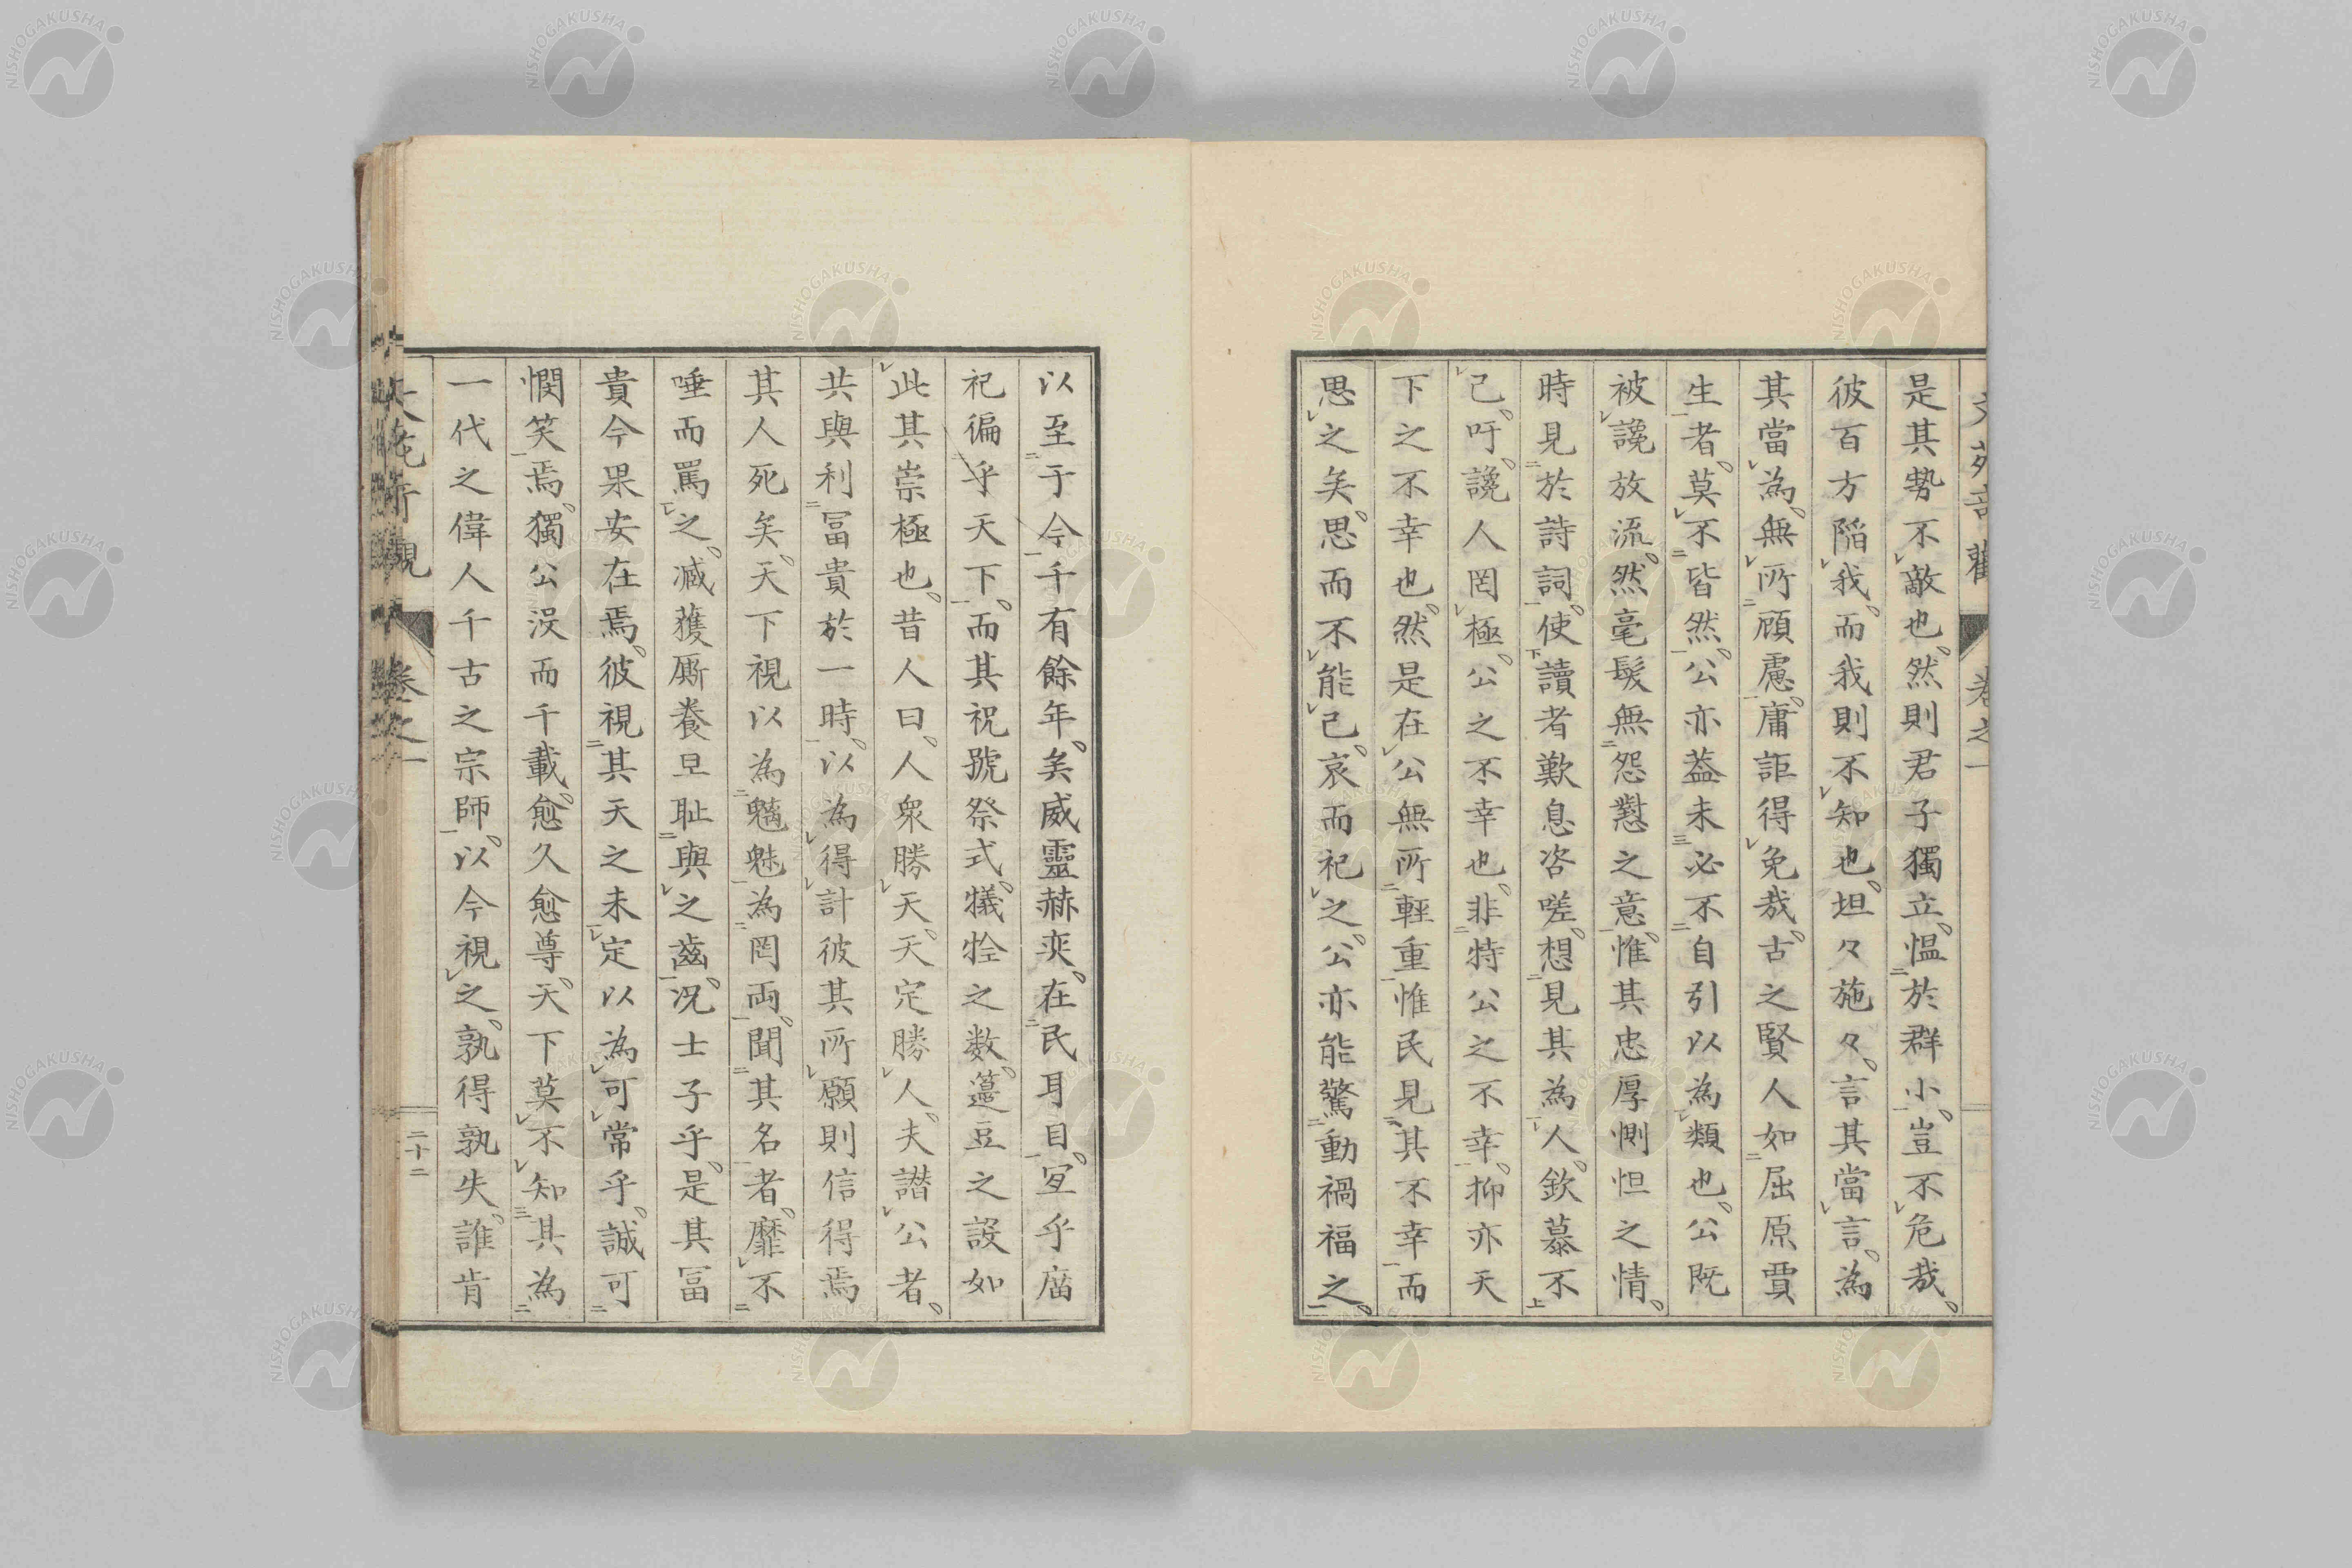 是其勢不敵也然則君子獨立慍於群小豈不危哉
彼百方陷我而我則不知也坦々施々言其當言為
其當為無所顧慮庸詎得免哉古之賢人如屈原賈
生者莫不皆然公亦蓋未必不自引以為類也公既
被讒放流然毫髮無怨懟之意惟其忠厚惻怛之情
時見於詩詞使讀者歎息咨嗟想見其為人欽慕不
已吁讒人罔極公之不幸也非特公之不幸抑亦天
下之不幸也然是在公無所輕重惟民見其不幸而
思之矣思而不能已哀而祀之公亦能驚動禍福之
以至于今千有餘年矣威靈赫奕在民耳目宜乎廟
祀徧乎天下而其祝號祭式犧牷之數籩豆之設如
此其崇極也昔人曰人衆勝天天定勝人夫譖公者
共與利冨貴於一時以為得計彼其所願則信得焉
其人死矣天下視以為魑魅為罔両聞其名者靡不
唾而罵之减獲厮養且耻與之齒况士子乎是其冨
貴今果安在焉彼視其天之未定以為可常乎誠可
憫笑焉獨公沒而千載愈久愈尊天下莫不知其為
一代之偉人千古之宗師以今視之孰得孰失誰肯
卷之一
二十二
NISHOGAKUSHA